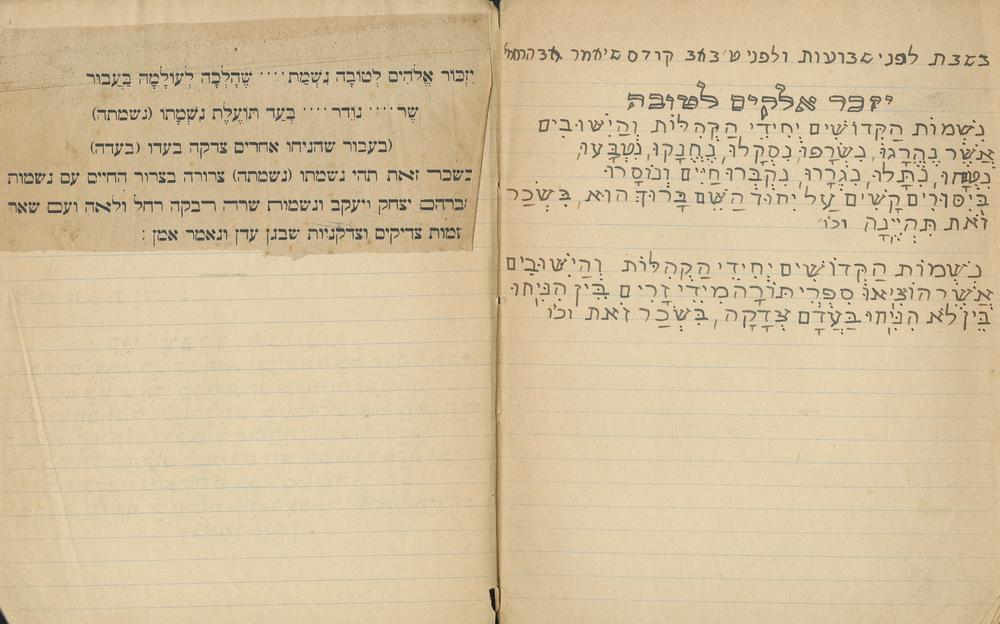 בשבת לפני שבועות ולפני ט׳ באב קודם שיאמר אב הרחמים
יזכר אלקים לטובה
נִשְׁמוֹת הַקְּדוֹשִׁים יְחִידֵי הַקְּהִלּוֹת וְהַיִּשּׁוּבִים
אֲשֶׁר נֶהֶרְגוּ, נִשְׂרְפוּ, נִסְקְלוּ, נֶחְנְקוּ, נִטְבְּעוּ,
נִתְּלוּ, נִגְרְרוּ, נִקְבְּרוּ חַיִּים וְנוֹסְרוּ
בְּיִסּוּרִים קָשִׁים עַל יִחוּד הַשֵּׁם בָּרוּךְ הוּא, בִּשְׂכַר
זֹאת תִּהְיֶינָה וכו׳
נִשְׁמוֹת הַקְּדוֹשִׁים יְחִידֵי הַקְּהִלּוֹת וְהַיִּשּׁוּבִים
אֲשֶׁר הוֹצִיאוּ סִפְרֵי תוֹרָה מִידֵי זָרִים בֵּין הִנִּיחוּ
בֵּין לֹא הִנִּיחוּ בַּעֲדָם צְדָקָה, בִּשְׂכַר זֹאת וכו׳
יִזְכּוֹר אֱלֹהִים לְטוֹבָה נִשְׁמַת .... שֶׁהָלְכָה לְעוֹלָמָהּ בַּעֲבוּר
שֶׁר .... נוֹדֵר .... בְּעַד תּוֹעֶלֶת נִשְׁמָתוֹ (נשמתה)
(בעבור שהניחו אחרים צדקה בעדו (בעדה)
בשכר זאת תהי נשמתו (נשמתה) צרורה בצרור החיים עם נשמות
אברהם יצחק ויעקב ונשמות שרה רבקה רחל ולאה ועם שאר
נשמות צדיקים וצדקניות שבגן עדן ונאמר אמן :